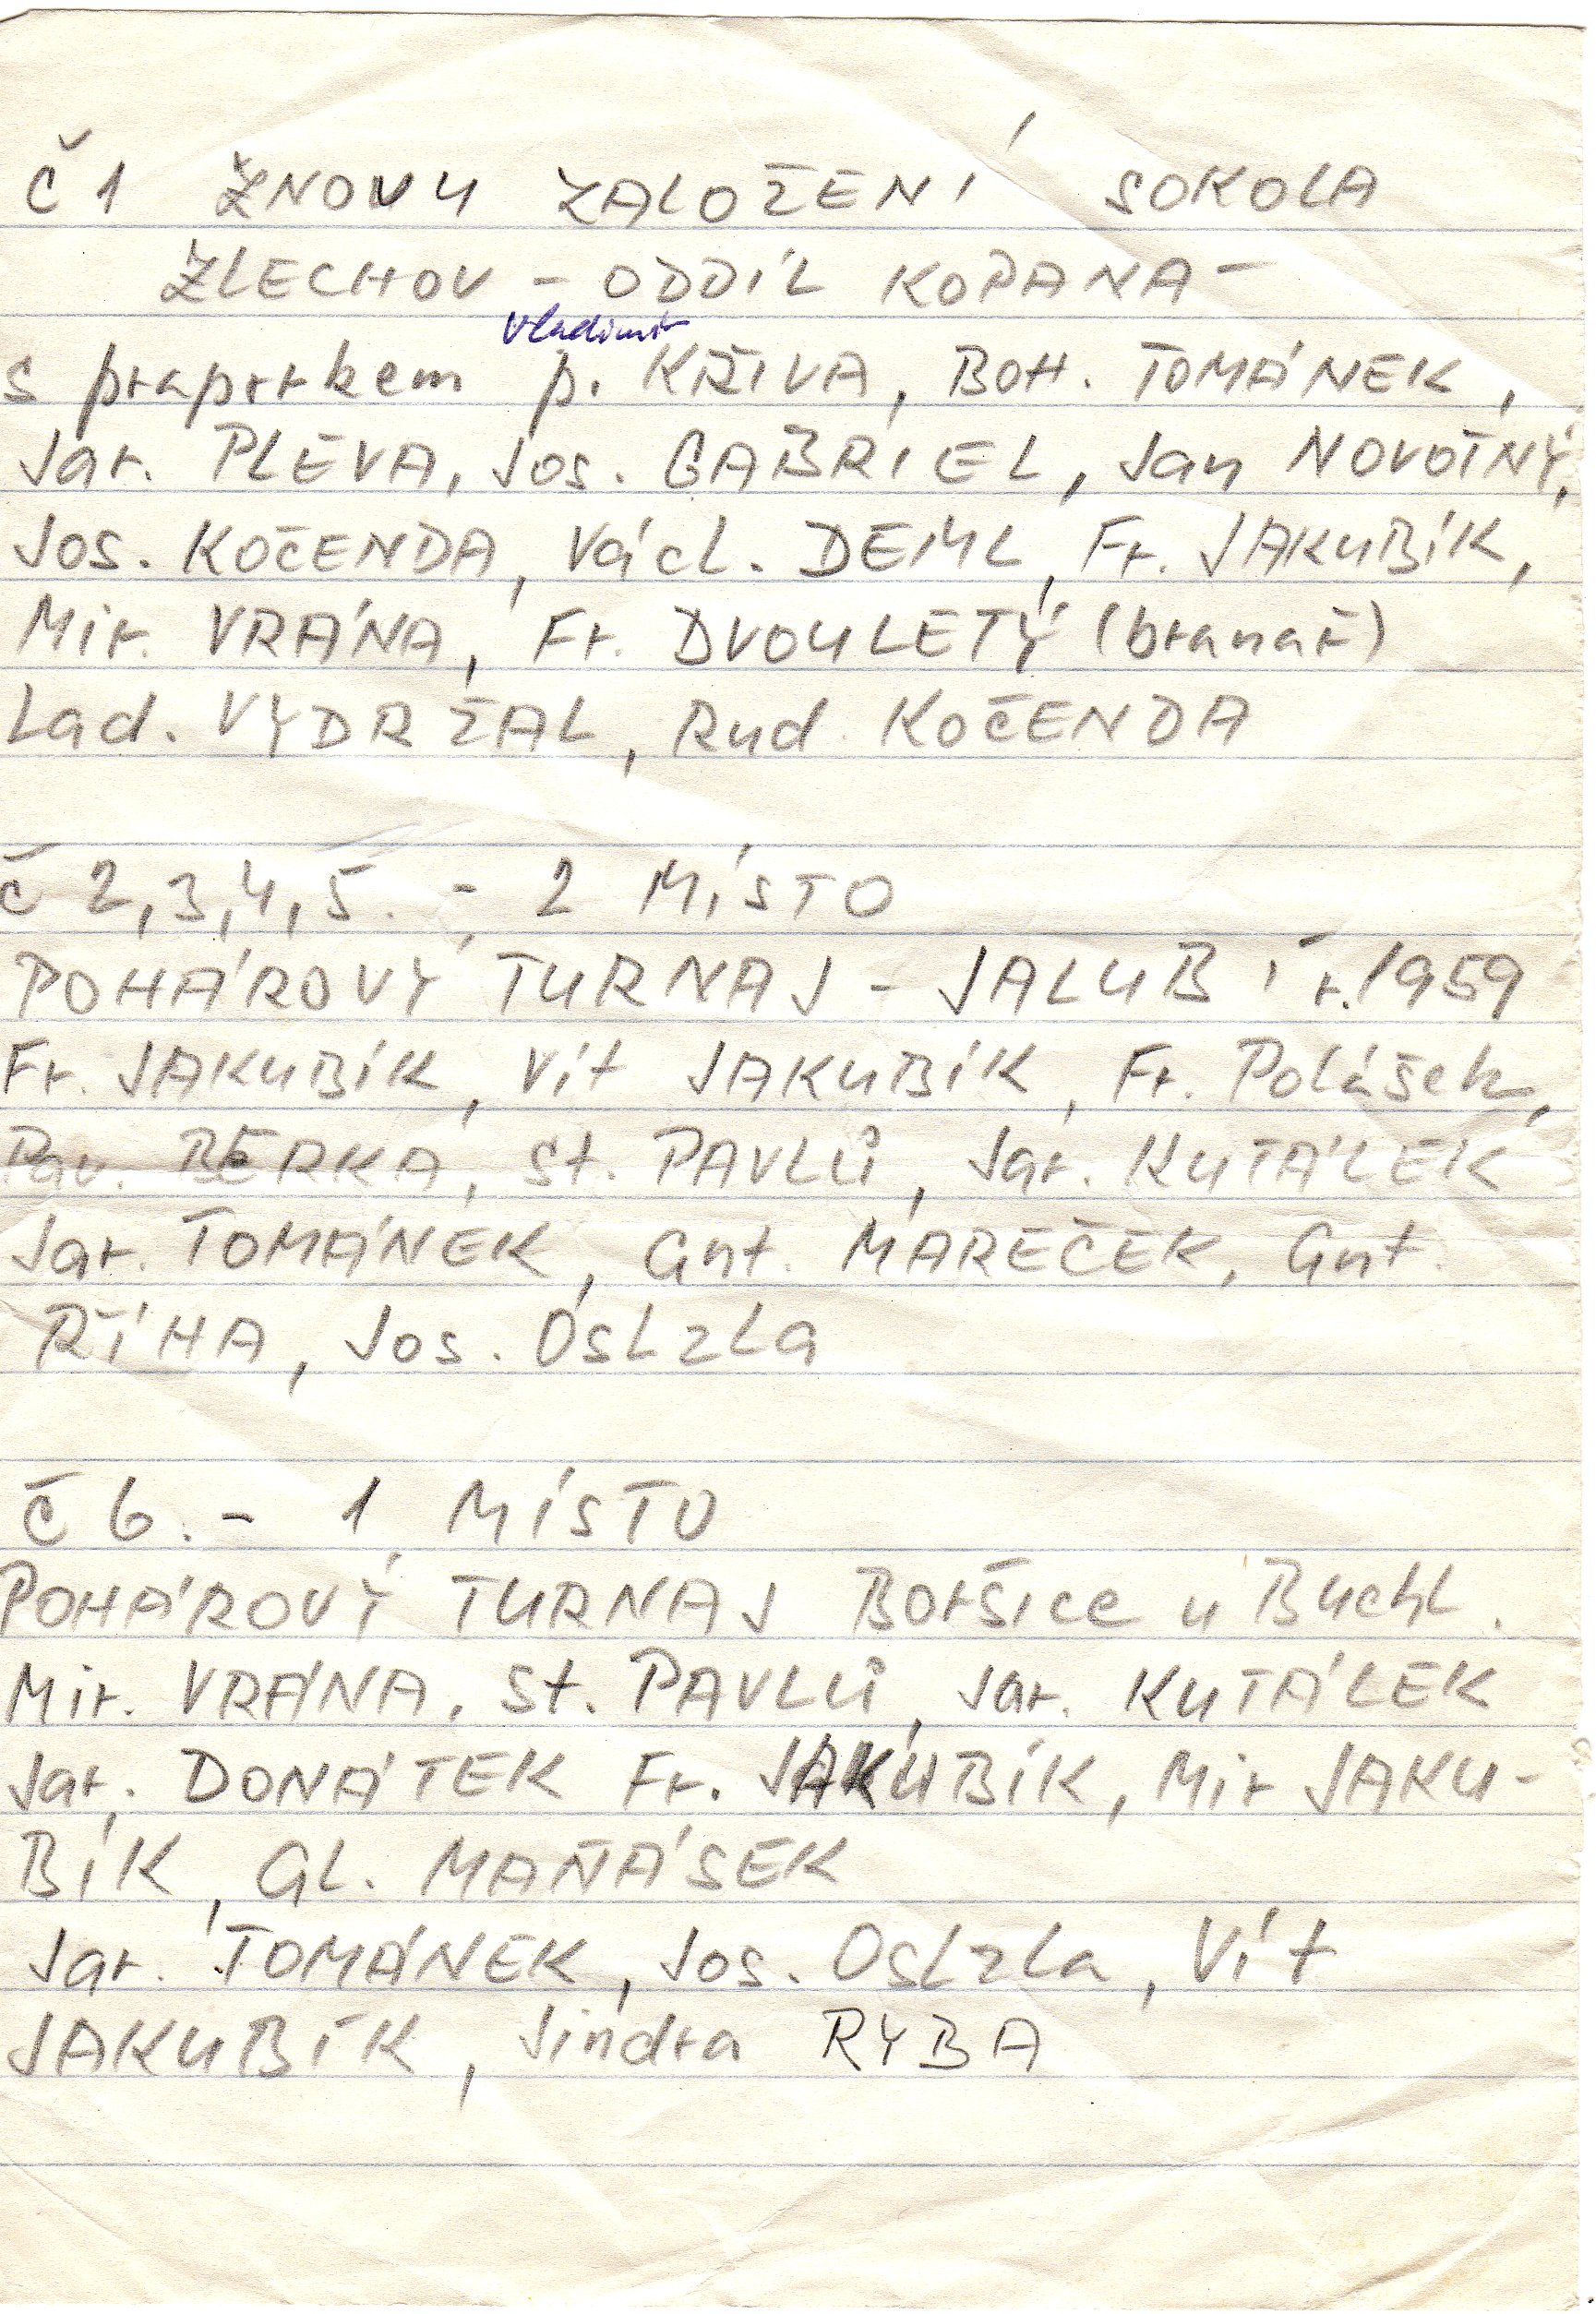 Č 1 ZNOVU ZALOŽENÍ SOKOLA
ZLECHOV - ODDÍL KOPANÁ
Vladimír
s praporkem p. KŘIVA, BOH. TOMÁNEK,
Jar. PLEVA, Jos. GABRIEL, Jan NOVOTNÝ,
Jos. KOČENDA, Václ. DEML, Fr. JAKUBÍK,
Mir. VRÁNA, Fr. DVOULETÝ (branař)
Lad. VYDRŽAL, Rud. KOČENDA
č 2,3,4,5. - 2 MÍSTO
POHÁROVÝ TURNAJ - JALUBÍ r. 1959
Fr. JAKUBÍK, Vít JAKUBÍK, Fr. Polášek,
Pav. BERKA, St. PAVLŮ, Jar. KUTÁLEK
Jar. TOMÁNEK, Ant. MAREČEK, Ant.
ŘÍHA, Jos. OSLZLA
č 6. - 1 MÍSTO
POHÁROVÝ TURNAJ Boršice u Buchl.
Mir. VRÁNA, St. PAVLŮ, Jar. KUTÁLEK
Jar. DONÁTEK Fr. JAKUBÍK, Mir JAKU-
BÍK, Al. MAŇÁSEK
Jar. TOMÁNEK, Jos. Oslzla, Vít
JAKUBÍK, Jindra RYBA